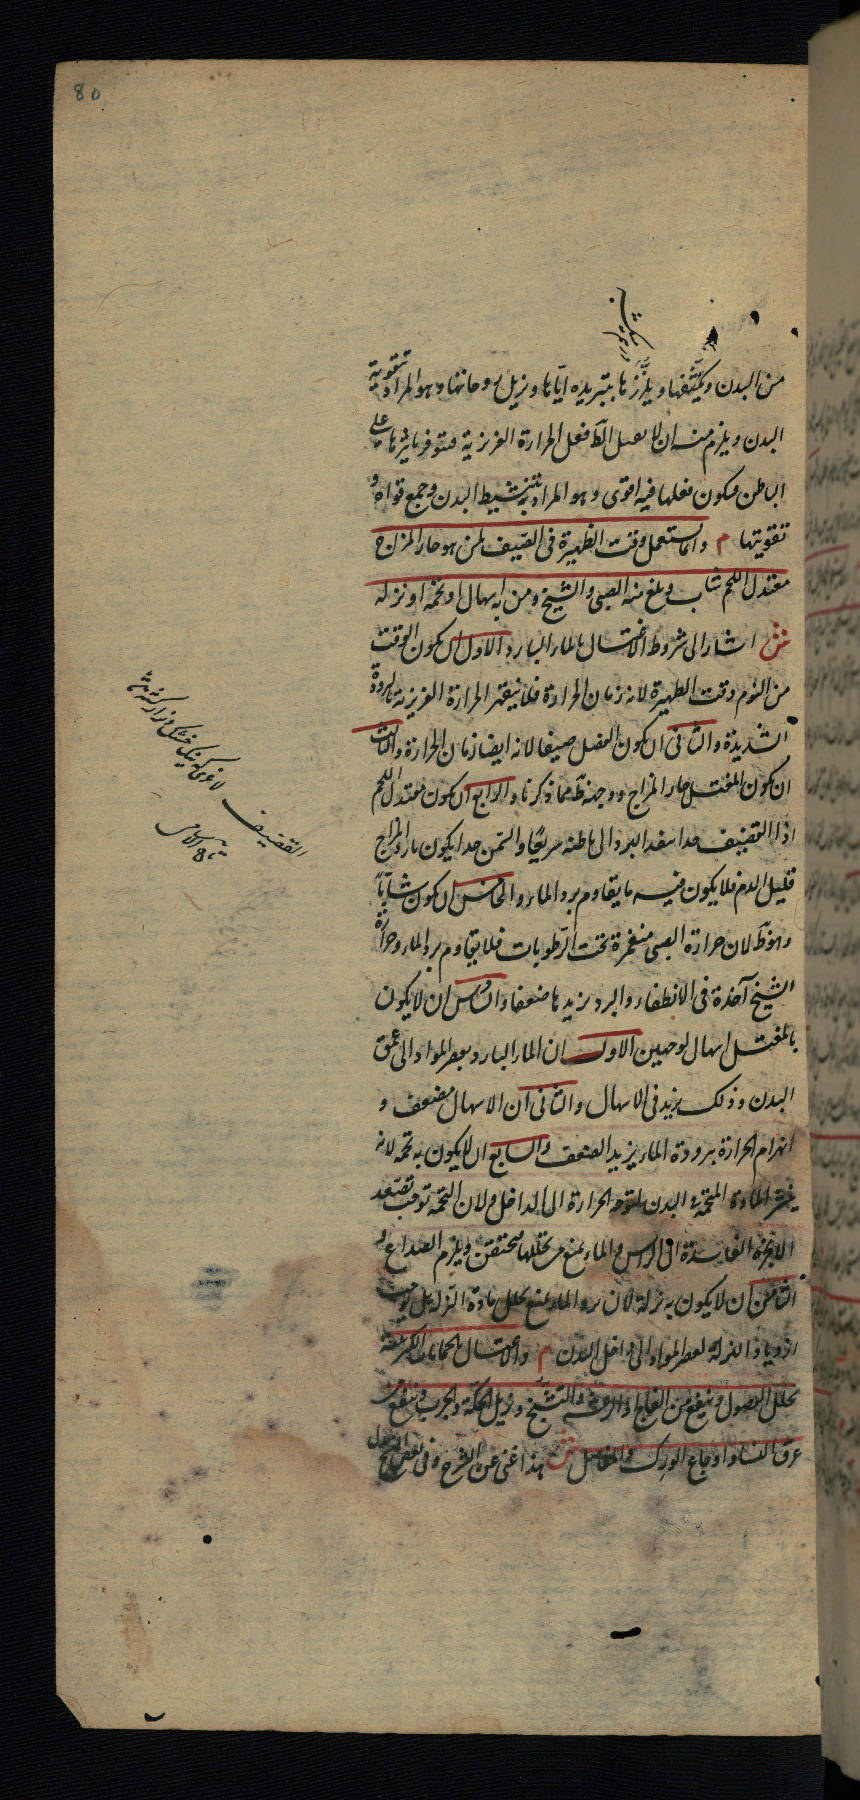 80
من البدن ويكثفها ويلززها بتبريده اياها ويزيل روحانتها وهو المراد بتقوية
البدن ويلزم منه ان لا يصل الظ فعل الحرارة الغريزية متوفرا على
الباطن فيكون فعلها فيه اقوى وهو المراد بتنشيط البدن وجمع قواه و
تقويتها م وانما يستعمل وقت الظهيرة في الصيف لمن هو حار المزاج
معتدل اللحم شاب ويمنع منه الصبي والشيخ ومن به اسهال او تخمة او نزلة
ش اشار الى شروط الاغتسال بالماء البارد الاول ان يكون الوقت
من اليوم وقت الظهيرة لانه زمان الحرارة فلا تنقهر الحرارة الغريزية بالبرودة
الشديدة والثاني ان يكون الفصل صيفا لانه ايضا زمان الحرارة والثالث
ان يكون المغتسل حار المزاج ووجهه ظ مما ذكرنا والرابع ان يكون معتدل اللحم
اذ القضيف جدا ينفذ البرد الى باطنه سريعا والسمن جدا يكون بارد المزاج
قليل الدم فلا يكون فيه ما يقاوم برد الماء والخامس ان يكون شابا
وهو ظ لان حرارة الصبي منغمرة تحت الرطوبات فلا يقاوم برد الماء وحرارة
الشيخ آخذة في الانطفاء والبرد يزيدها ضعفا والسادس ان لا يكون
بالمغتسل اسهال لوجهين الاول ان الماء البارد يعصر المواد الى عمق
البدن وذلك يزيد في الاسهال والثاني ان الاسهال مضعف و
انهزام الحرارة ببرودة الماء يزيد الضعف والسابع ان لا يكون به تخمة لانه
المادة البدن لتوجه الحرارة الى الداخل ولان التخمة توجب تصعد
الابخرة الفاسدة الى الراس والماء يمنع من تحللها فتحتقن ويلزم الصداع و
الثامن ان لا يكون به نزلة لان برد الماء يمنع تحلل مادة النزلة بل يوجب
ازدياد النزلة لعصر المواد الى داخل البدن م والاغتسال بالحمامات الكبريتية
يحلل الفضول وينفع من الفالج والرعشة والتشنج ويزيل الحكة والجرب وينفع من
عرق النسا واوجاع الورك والمفاصل ش هذا غني عن الشرح وفي بعض النسخ
القضيف